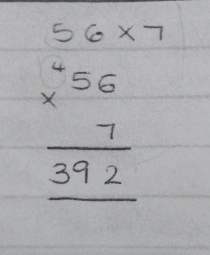 56×7
⁴56
×
7
392